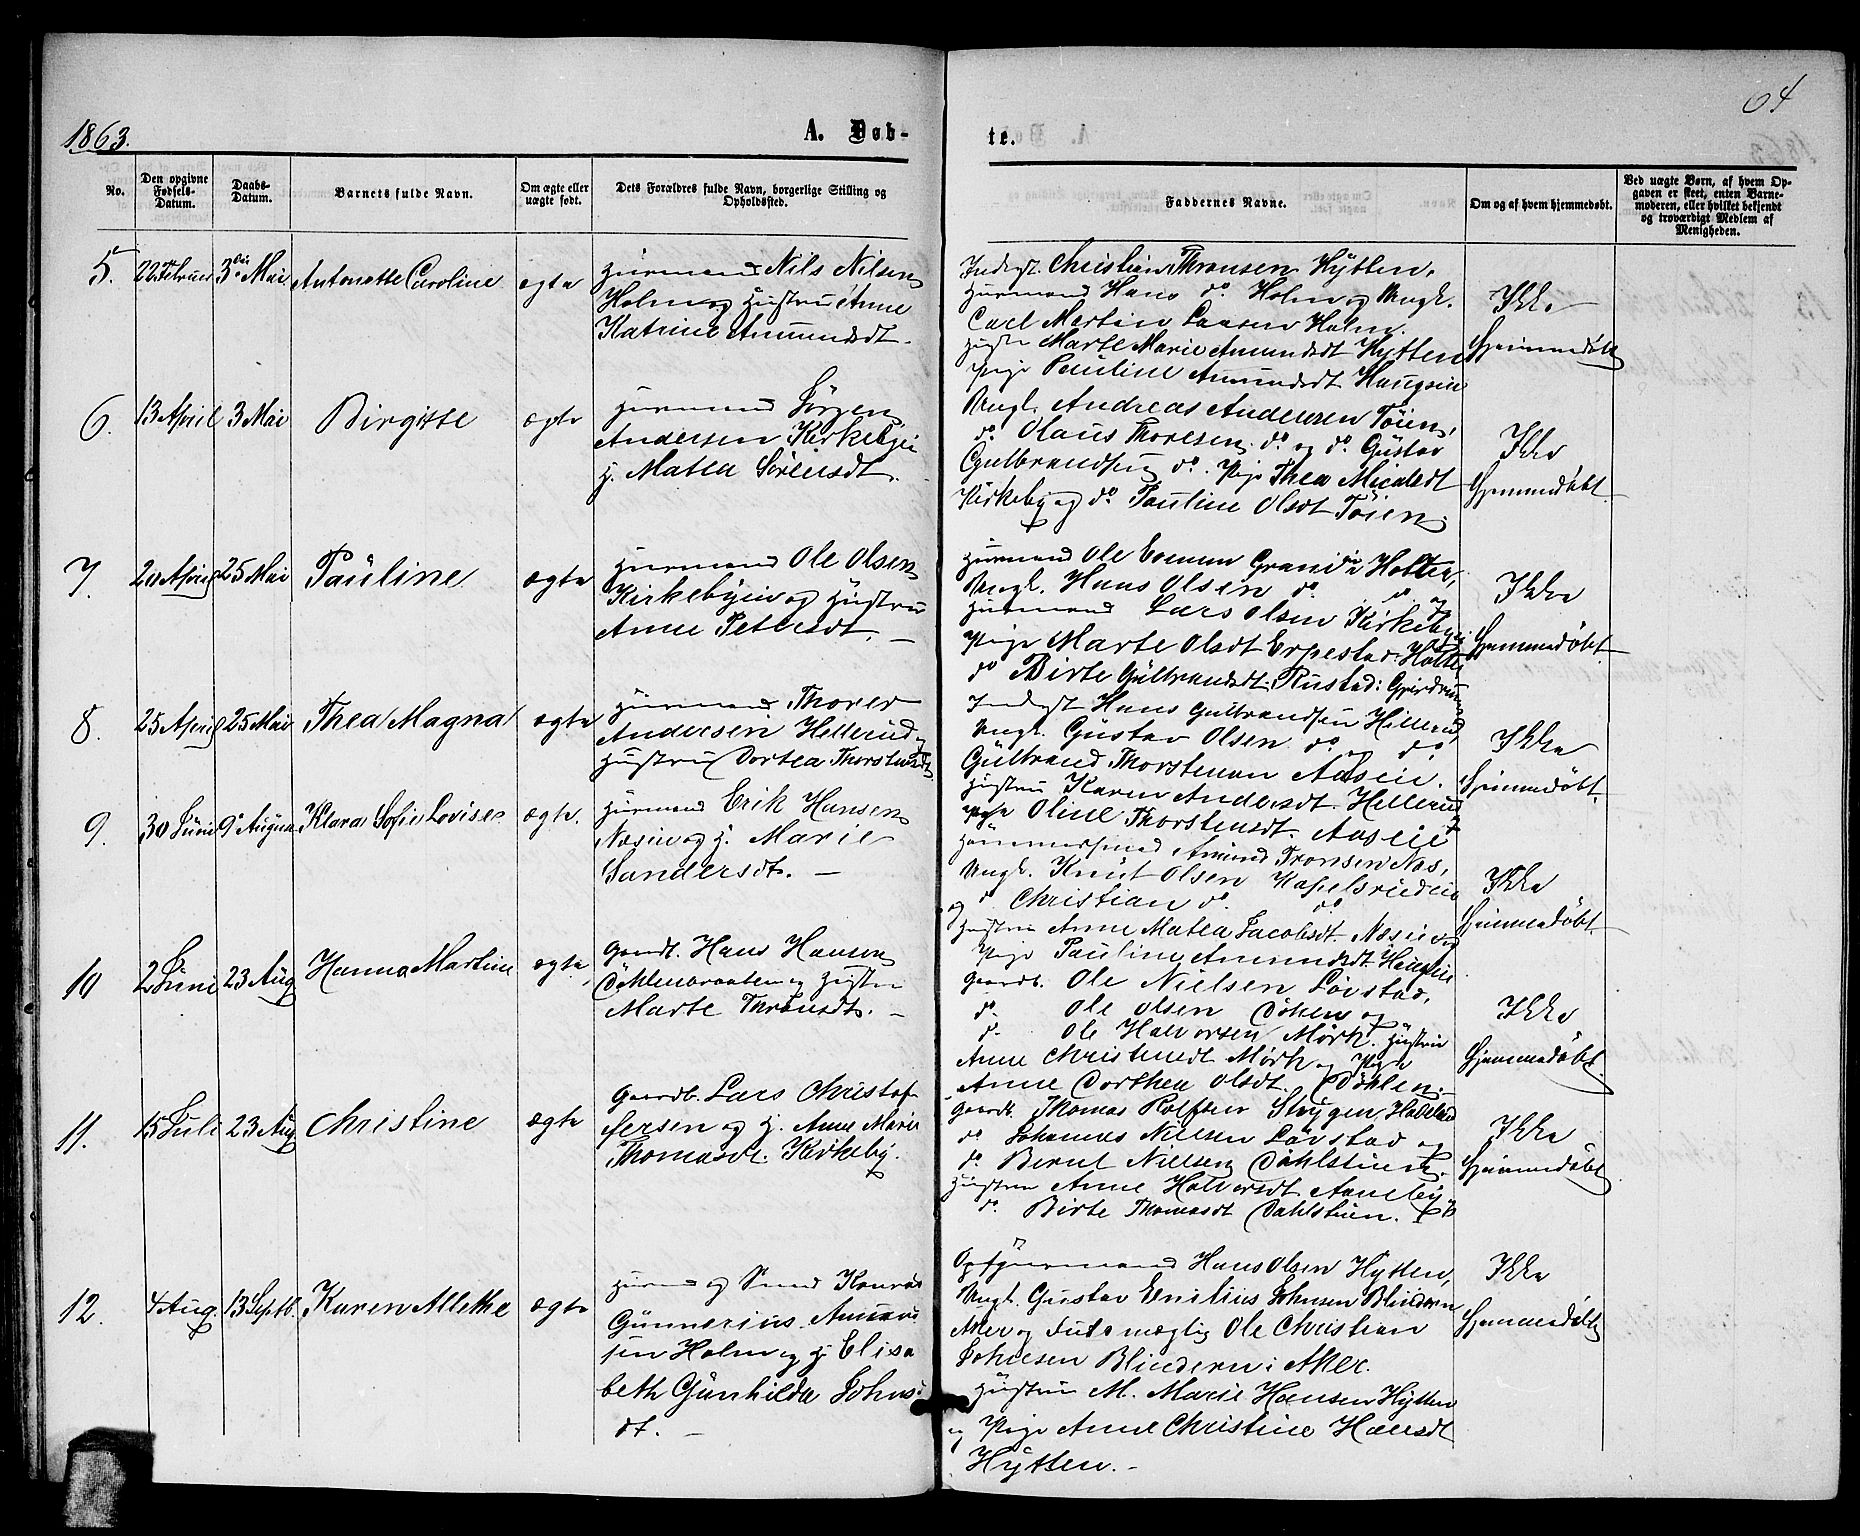 1863.
A. Døb-
te.
64
No.
Den opgivne Fødsels-Datum.
Daabs-Datum.
Barnets fulde Navn.
Om ægte eller uægte født.
Dets Forældres fulde Navn, borgerlige Stilling og Opholdssted.
Faddernes Navne.
Om og af hvem hjemmedøbt.
Ved uægte Børn, af hvem Opgaven er skeet, enten Barnemoderen, eller hvilket bekjendt og troværdigt Medlem af Menigheden.
5. 22 Februar 3die Mai Antonette Caroline ægte
Huusmand Nils Nilsen
Holm og Hustru Anne
Katrine Amundsdt.
Indgst. Christian Thronsen Hytten,
Huusmand Hans do. Holm og Ungk.
Carl Martin Larsen Holm.
Hustru Marte Marie Amundsdt Hytten
Pige Pauline Amundsdt Haugeeie
Ikke
Hjemmedøbt
6. 13 April 3 Mai Birgitte ægte
Huusmand Jørgen
Andersen Kirkebyei
h. Matea Sørensdt.
Ungk. Andreas Andersen Tøien,
do. Olaus Thoresen do. og do. Gustav
Gulbrandsen do. Pige Thea
Kirkeby og do. Pauline Olsdt Tøien.
Ikke
Hjemmedøbt.
7. 20 April 25 Mai Pauline ægte
Huusmand Ole Olsen
Kirkebyeie og Hustru
Anne Petersdt. —
Huusmand Ole Holter,
Ungk. Hans Olsen do. og
Huusmand Lars Olsen Kirkebyei
Pige Marte Olsdt Erpestad: Holter
do Birte Gulbrandsdt. Rustad: Gjerdrum
Ikke
Hjemmedøbt.
8. 25 April 25 Mai Thea Magna ægte
Huusmand Thorer
Andersen Hellerud og
Hustru Dortea Thorstensdt
Indgst Hans Gulbrandsen Hillerud,
Ungk. Gustav Olsen do og do
Gulbrand Thorstensen Aaseie.
Hustru Karen Andersdt. Hellerud
Pige Oline Thorstensdt. Aaseie
Ikke
Hjemmedøbt.
9. 30 Juni 9 August Klara Sofie Lovise ægte.
Huusmand Erik Hansen
Næseie og h. Marie
Sandersdt. —
Hammersmed Amund Tronsen Næs,
Ungk. Knut Olsen
do Christian do. do.
og Hustru Anne Matea Jacobsdt. Næseie og
Pige Pauline Amundsdt. Haugeeie
Ikke
Hjemmedøbt.
10 2 Juni 23 Aug Hanna Martine ægte
Gaardb. Hans Hansen
Døhlenbraaten og Hustru
Marte Thronsdt. —
Gaardb. Ole Nielsen Løvstad,
do. Ole Olsen Døhlen og
do. Ole Halvorsen Mørk. Hustru
Anne Christensdt Mørk og Pige
Anne Dorthea Olsdt. Døhlen.
Ikke
Hjemmedøbt.
11. 15 Juli 23 Aug Christine ægte
Gaardb. Lars Christof
fersen og h. Anne Marie
Thomasdt. Kirkeby.
Gaardb. Thomas Rolfsen Stygen,
do Johannes Nielsen Løvstad og
do. Bernt Nielsen Dahlstuen.
Hustru Anne Halvorsdt Aaneby
do. Birte Thomasdt Dahlstuen.
Ikke
Hjemmedøbt
12. 4 Aug. 13 Septb. Karen Alethe ægte
Huusm. og Smed Konrad
Gunnerius Amund
sen Holm og h Elisa
beth Gunhilda Johns
dt. —
Opsynsmand Hans Olsen Hytten,
Ungk. Gustav Emilius Johnsen Blindern
Aker og Ole Christian
Johnsen Blindern i Aker.
Hustru M. Marie Hansen Hytten
og Pige Anne Christine Hansdt
Hytten. —
Ikke
Hjemmedøbt